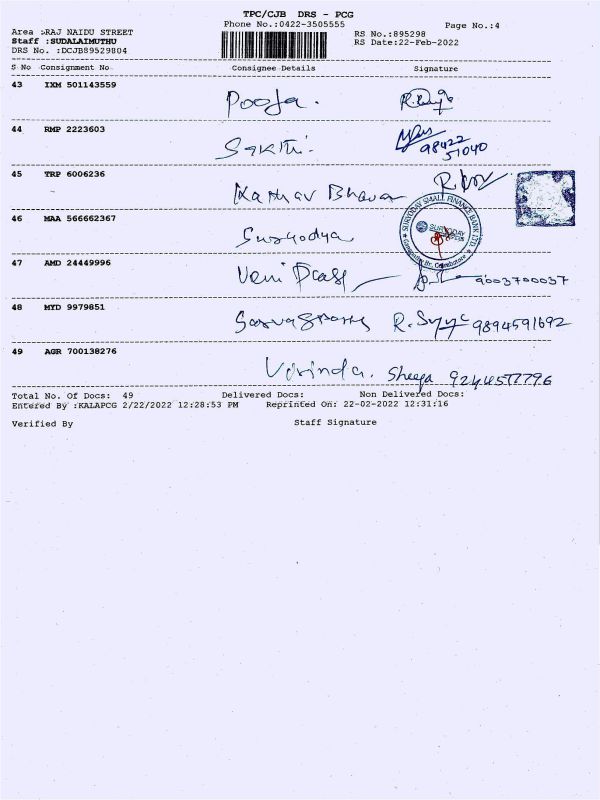 TPC/CJB DRS - PCG
Phone No.:0422-3505555
Page No.:4
Area :RAJ NAIDU STREET
RS No.:895298
Staff :SUDALAIMUTHU
RS Date:22-Feb-2022
DRS No. :DCJB89529804
S No Consignment No Consignee Details Signature
43 IXM 501143559 Pooja.
44 RMP 2223603 Sakthi. 98422
51040
45 TRP 6006236 Bhavan
46 MAA 566662367 Suryodya
SURYODAY SMALL FINANCE BANK LTD.
SURYODAY
47 AMD 24449996 Veni 9003700037
48 MYD 9979851 9894591692
49 AGR 700138276 Vrinda. Sheeja 9244577796
Total No. Of Docs: 49 Delivered Docs: Non Delivered Docs:
Entered By :KALAPCG 2/22/2022 12:28:53 PM Reprinted On: 22-02-2022 12:31:16
Verified By Staff Signature